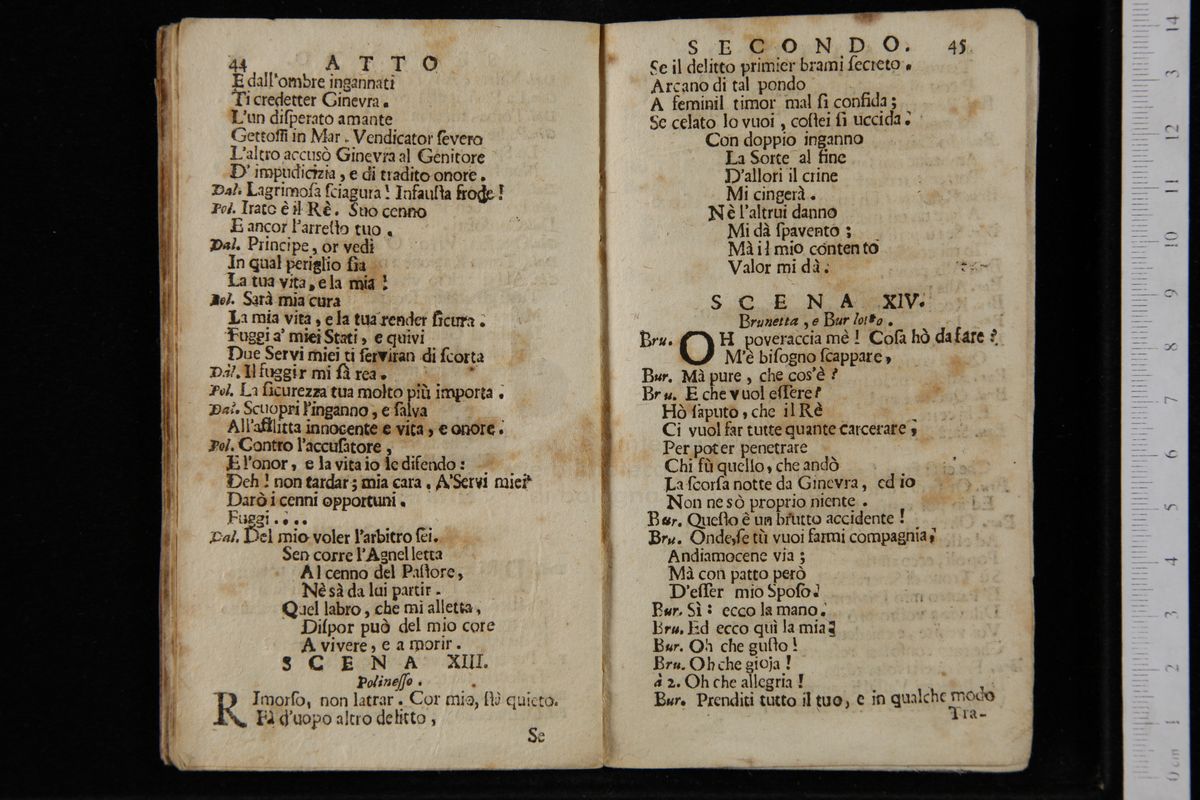 44 ATTO
E dall'ombre ingannati
Ti credetter Ginevra.
L'un diſperato amante
Gettoſſi in Mar. Vendicator ſevero
L'altro accusò Ginevra al Genitore
D' impudicizia, e di tradito onore.
Dal. Lagrimoſa ſciagura! Infauſta frode!
Pol. Irato è il Rè. Suo cenno
E ancor l'arreſto tuo.
Dal. Principe, or vedi
In qual periglio ſia
La tua vita, e la mia!
Pol. Sarà mia cura
La mia vita, e la tua render ſicura.
Fuggi a' miei Stati, e quivi
Due Servi miei ti ſerviran di ſcorta
Dal. Il fuggir mi fà rea.
Pol. La ſicurezza tua molto più importa.
Dal. Scuopri l'inganno, e ſalva
All'afflitta innocente e vita, e onore.
Pol. Contro l'accuſatore,
E l'onor, e la vita io le difendo:
Deh! non tardar; mia cara. A'Servi miei
Darò i cenni opportuni.
Fuggi....
Dal. Del mio voler l'arbitro ſei.
Sen corre l'Agnelletta
Al cenno del Paſtore,
Nè sà da lui partir.
Quel labro, che mi alletta,
Diſpor può del mio core
A vivere, e a morir.
SCENA XIII.
Polineſſo.
RImorſo, non latrar. Cor mio, ſtà quieto.
Fà d'uopo altro delitto,
Se
SECONDO. 45
Se il delitto primier brami ſecreto.
Arcano di tal pondo
A feminil timor mal ſi confida;
Se celato lo vuoi, coſtei ſi uccida.
Con doppio inganno
La Sorte al fine
D'allori il crine
Mi cingerà.
Nè l'altrui danno
Mi dà ſpavento;
Mà il mio contento
Valor mi dà.
SCENA XIV.
Brunetta, e Burlotto.
Bru. OH poveraccia mè! Coſa hò da fare?
M'è biſogno ſcappare,
Bur. Mà pure, che cos'è?
Bru. E che vuol eſſere?
Hò ſaputo, che il Rè
Ci vuol far tutte quante carcerare;
Per poter penetrare
Chi fù quello, che andò
La ſcorſa notte da Ginevra, ed io
Non ne sò proprio niente.
Bur. Queſto è un brutto accidente!
Bru. Onde, ſe tù vuoi farmi compagnia,
Andiamocene via;
Mà con patto però
D'eſſer mio Spoſo.
Bur. Sì: ecco la mano.
Bru. Ed ecco quì la mia
Bur. Oh che guſto!
Bru. Oh che gioja!
à 2. Oh che allegria!
Bur. Prenditi tutto il tuo, e in qualche modo
Tra-
0 cm 1 2 3 4 5 6 7 8 9 10 11 12 3 14